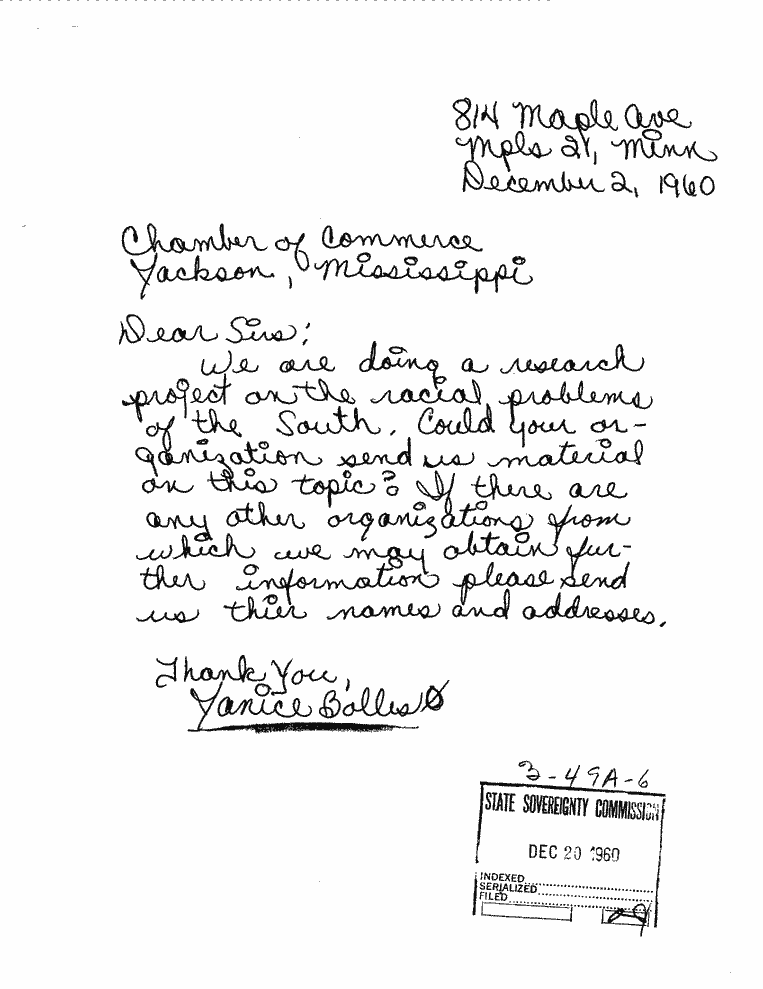 814 Maple Ave
Mpls 21, Minn
December 2, 1960
Chamber of Commerce
Jackson, Mississippi
Dear Sirs:
We are doing a research
project on the racial problems
of the South. Could your or-
ganization send us material
on this topic? If there are
any other organizations from
which we may obtain fur-
ther information please send
us thier names and addresses.
Thank You,
Janice Bolles
3-49A-6
STATE SOVEREIGNTY COMMISSION
DEC 20 1960
INDEXED
SERIALIZED
FILED